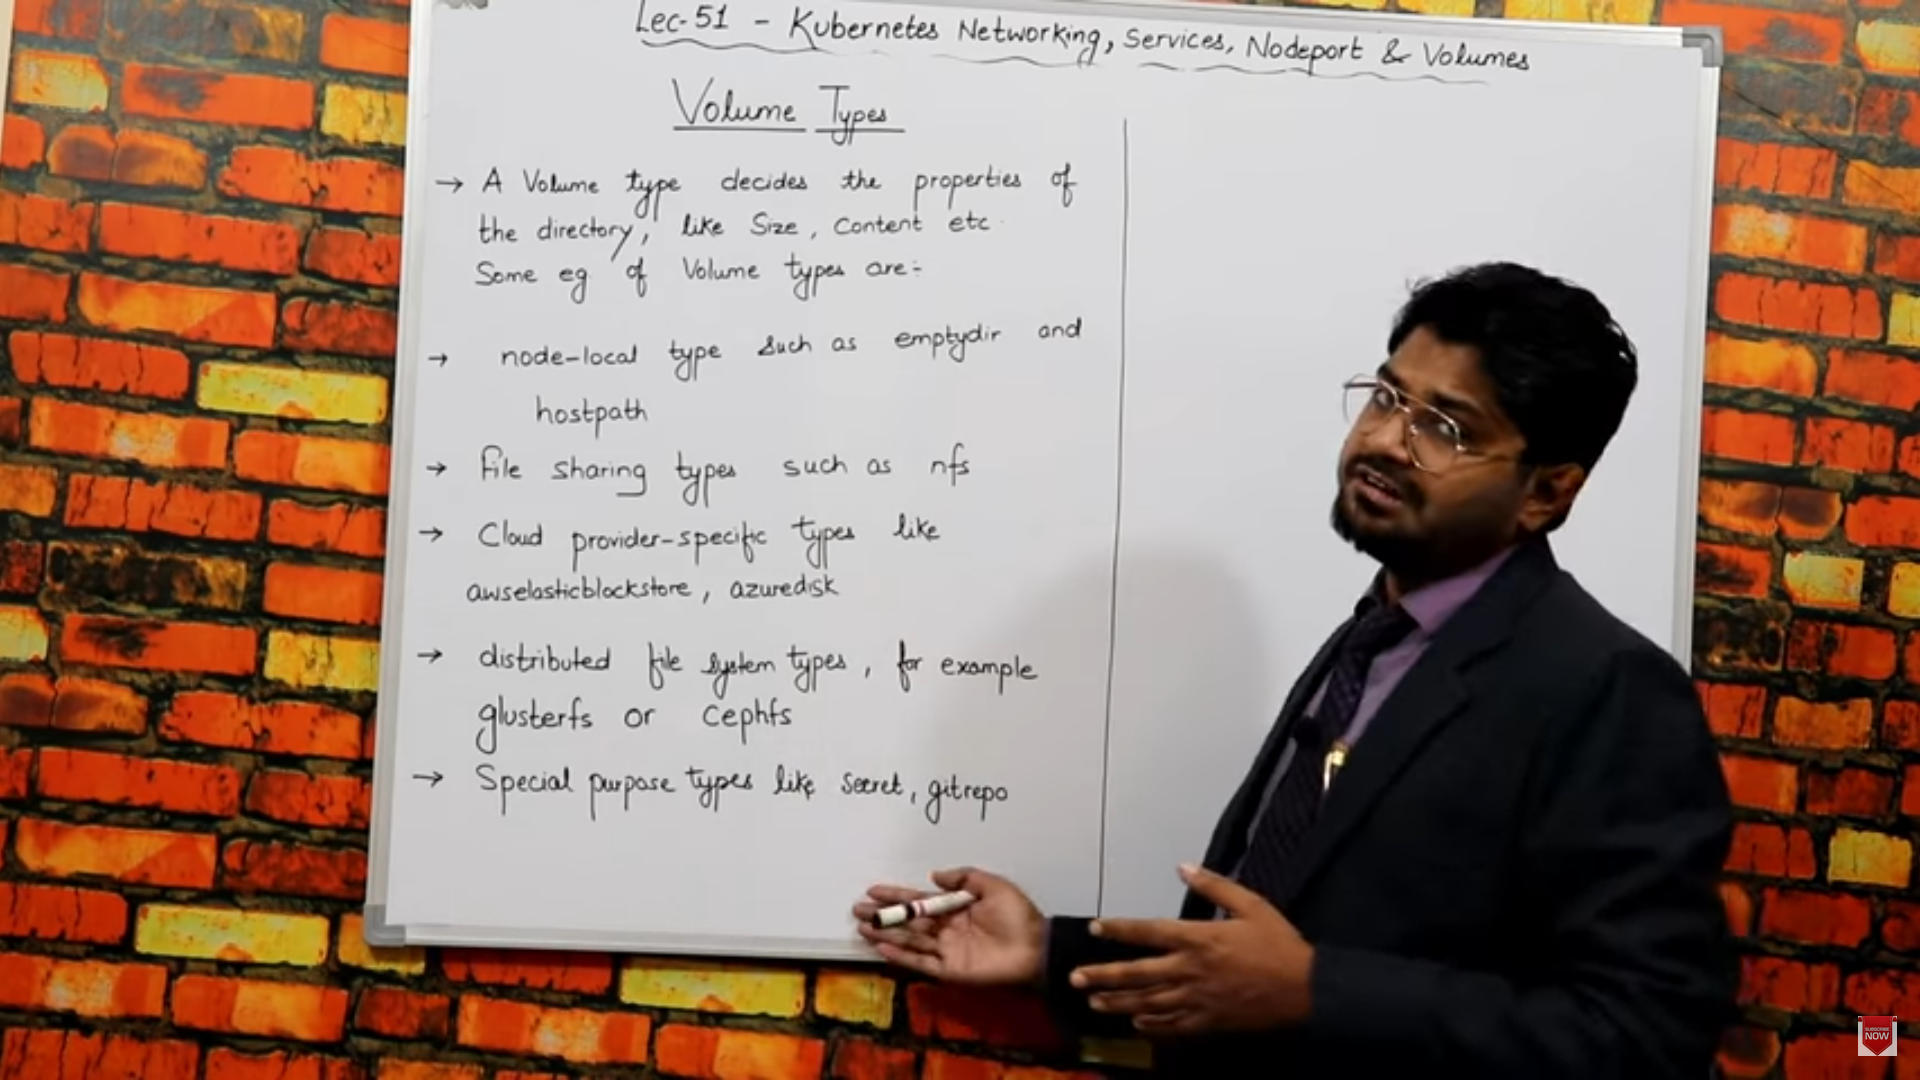 Lec-51 - Kubernetes Networking, Services, Nodeport & Volumes
Volume Types
→ A Volume type decides the properties of
the directory, like Size, Content etc.
Some eg of Volume types are:-
→ node-local type such as emptydir and
hostpath
→ file sharing types such as nfs
→ Cloud provider-specific types like
awselasticblockstore, azuredisk
→ distributed file system types, for example
glusterfs or cephfs
→ Special purpose types like secret, gitrepo
SUBSCRIBE
NOW